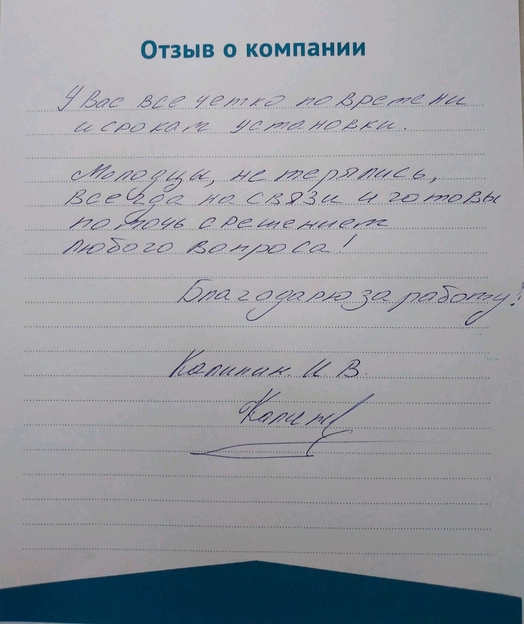 Отзыв о компании
У Вас все четко по времени
и срокам установки.
Молодцы, не терялись,
всегда на связи и готовы
помочь с решением
любого вопроса!
Благодарю за работу!
Калинин И В.
Калин